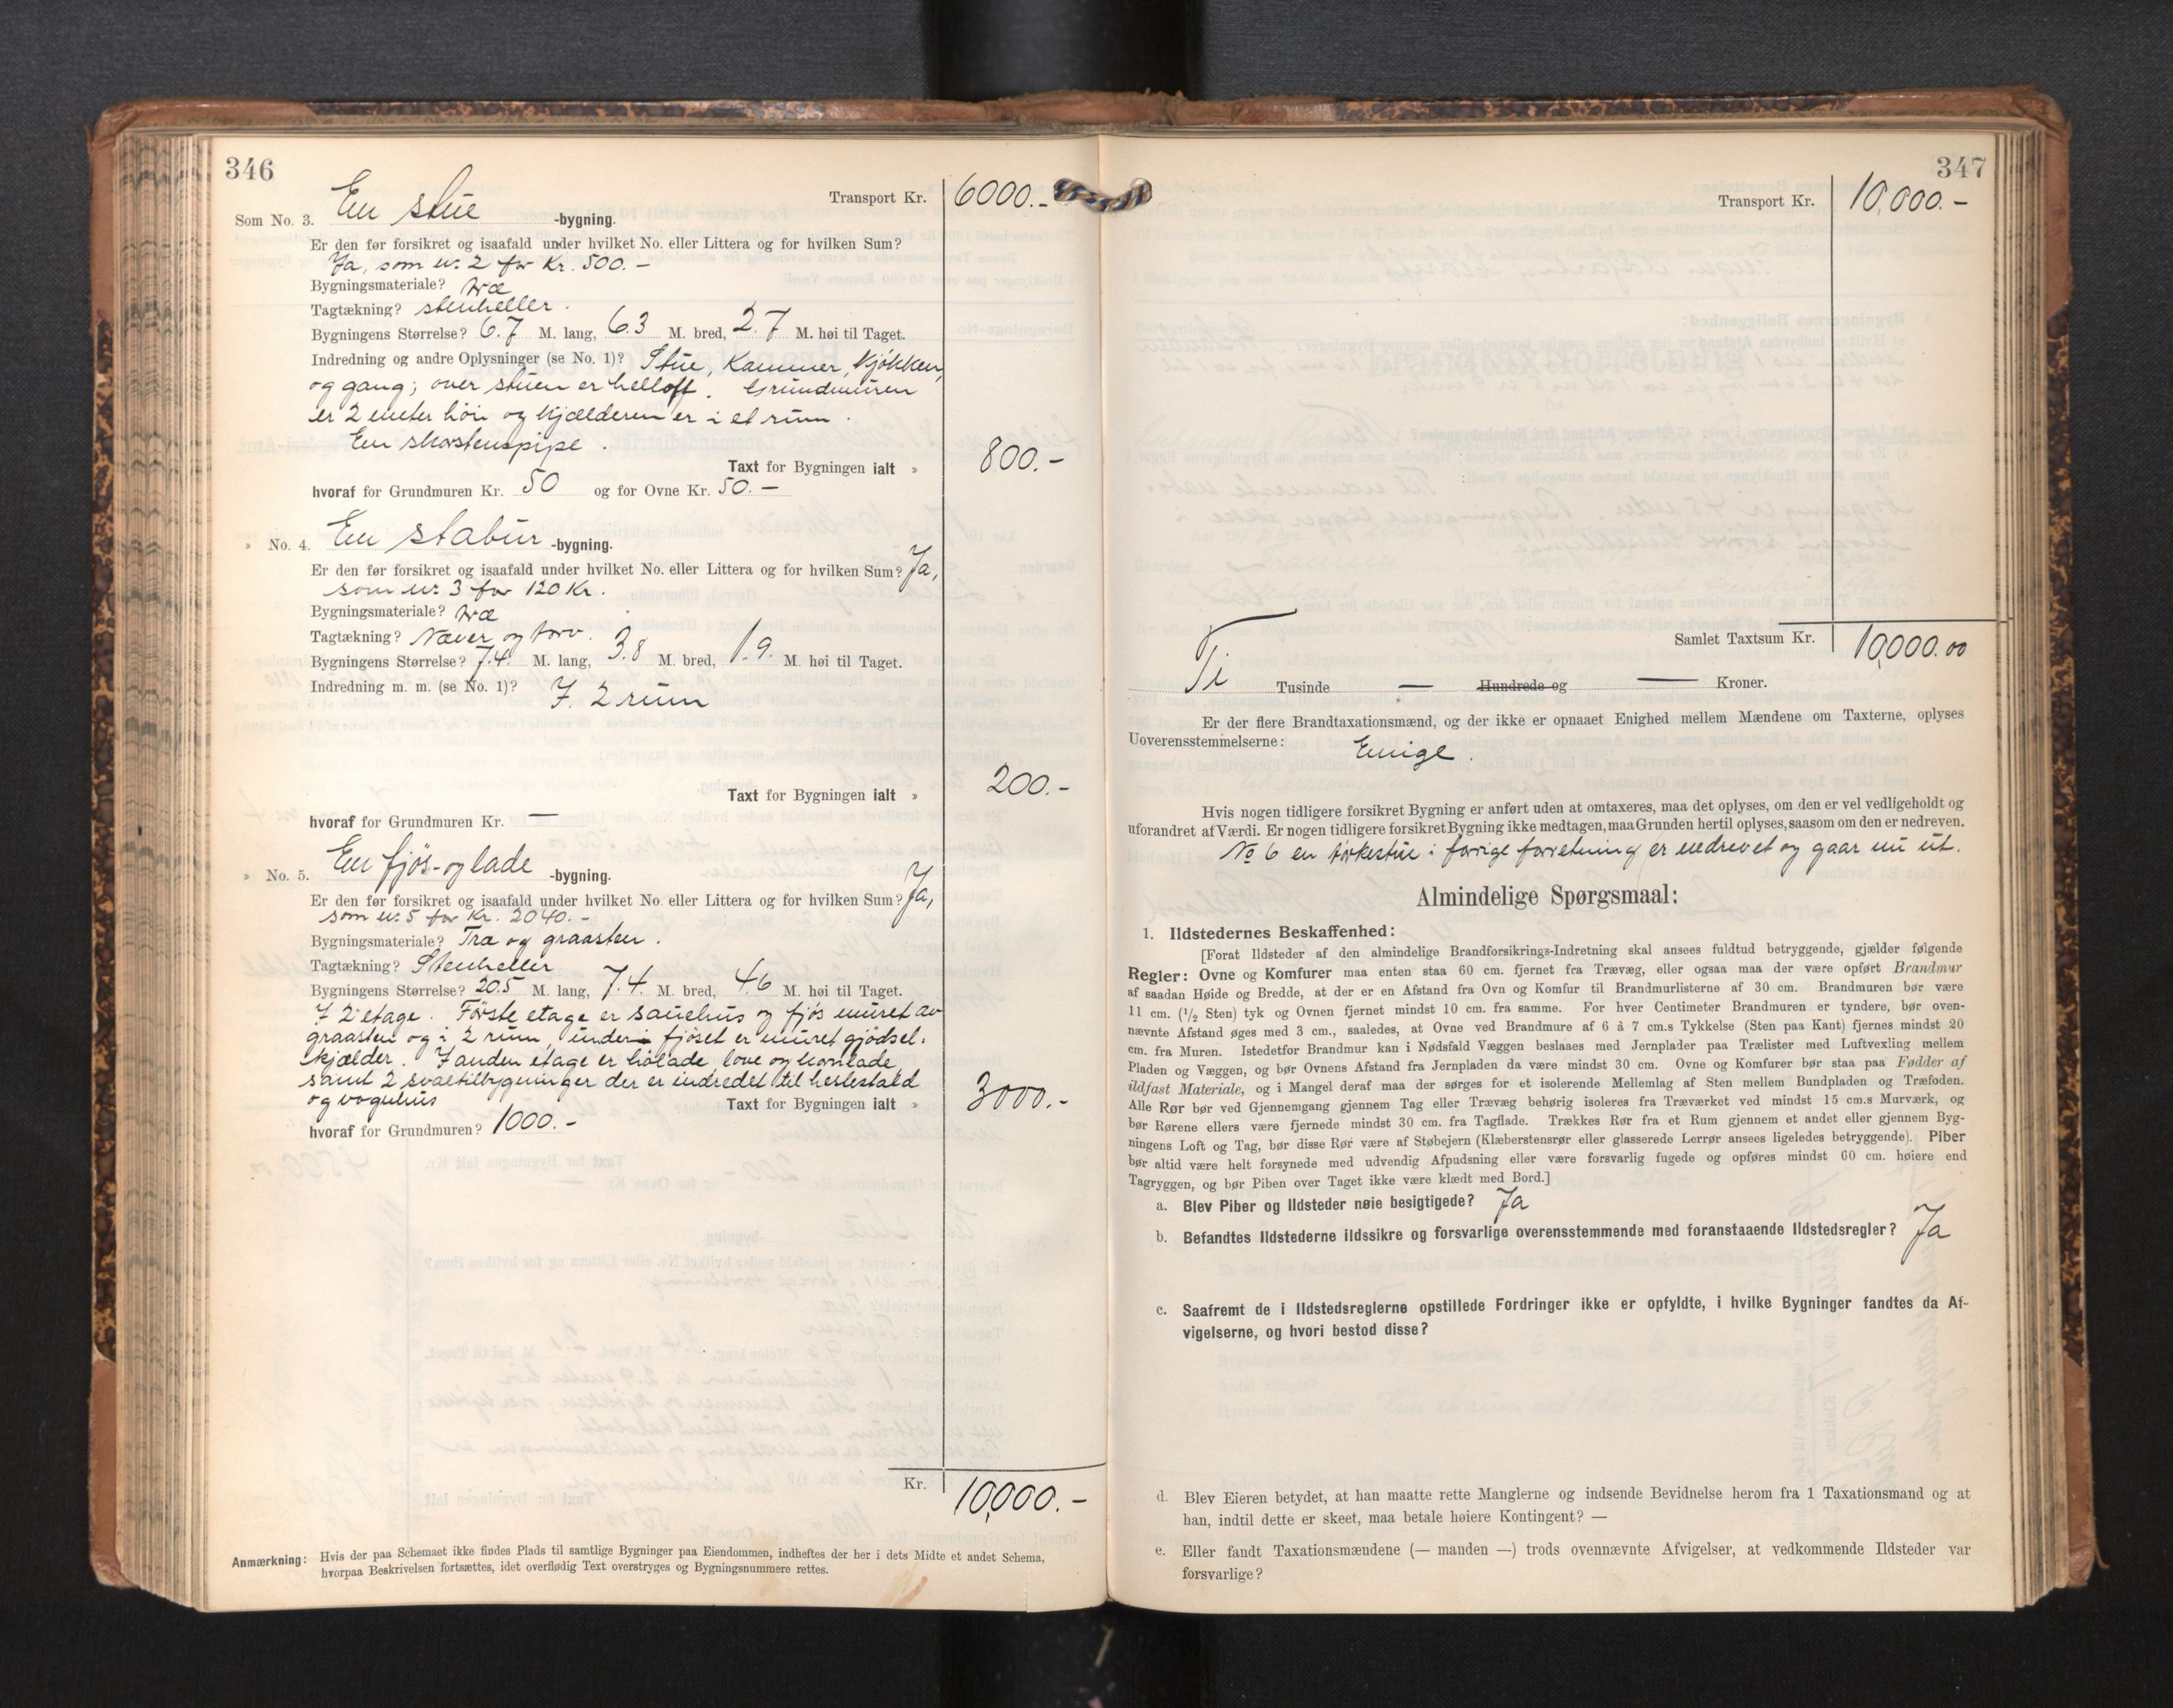 346
Transport Kr. 6000.-
Som No. 3. En stue -bygning.
Er den før forsikret og isaafald under hvilket No. eller Littera og for hvilken Sum?
Ja, som nr. 2 for Kr. 500.-
Bygningsmateriale? træ
Tagtækning? stenheller.
Bygningens Størrelse? 6.7 M. lang, 6.3 M. bred, 2.7 M. høi til Taget.
Indredning og andre Oplysninger (se No. 1)? Stue, Kammer, Kjøkken,
og gang; over stuen er helloft. Grundmuren
er 2 meter høi og kjælderen er i et rum.
En skorstenspipe.
Taxt for Bygningen ialt » 800.-
hvoraf for Grundmuren Kr. 50 og for Ovne Kr. 50.-
» No. 4. En stabur -bygning.
Er den før forsikret og isaafald under hvilket No. eller Littera og for hvilken Sum? Ja,
som nr. 3 for 120 Kr.
Bygningsmateriale? træ
Tagtækning? Næver og torv.
Bygningens Størrelse? 7.4. M. lang, 3.8 M. bred, 1.9. M. høi til Taget.
Indredning m. m. (se No. 1)? I 2 rum
Taxt for Bygningen ialt » 200.-
hvoraf for Grundmuren Kr. —
» No. 5. En fjøs- og lade -bygning.
Er den før forsikret og isaafald under hvilket No. eller Littera og for hvilken Sum? Ja,
som nr. 5 for Kr. 2040.-
Bygningsmateriale? Træ og graasten.
Tagtækning? Stenheller
Bygningens Størrelse? 20.5 M. lang, 7.4. M. bred, 4.6 M. høi til Taget.
I 2 etage. Første etage er sauehus og fjøs muret av
graasten og i 2 rum, under fjøset er muret gjødsel-
kjælder. I anden etage er hølade, love og kornlade
samt 2 svaltilbygninger der er indredet til hestestald
og vognhus
Taxt for Bygningen ialt » 3000.-
hvoraf for Grundmuren? 1000.-
Kr. 10,000.-
Anmærkning: Hvis der paa Schemaet ikke findes Plads til samtlige Bygninger paa Eiendommen, indheftes der her i dets Midte et andet Schema,
hvorpaa Beskrivelsen fortsættes, idet overflødig Text overstryges og Bygningsnummere rettes.
347
Transport Kr. 10,000.-
Samlet Taxtsum Kr. 10,000.00
Ti Tusinde — Hundrede og — Kroner.
Er der flere Brandtaxationsmænd, og der ikke er opnaaet Enighed mellem Mændene om Taxterne, oplyses
Uoverensstemmelserne: Enige.
Hvis nogen tidligere forsikret Bygning er anført uden at omtaxeres, maa det oplyses, om den er vel vedligeholdt og
uforandret af Værdi. Er nogen tidligere forsikret Bygning ikke medtagen, maa Grunden hertil oplyses, saasom om den er nedreven.
No 6 en tørkestue i forrige forretning er nedrevet og gaar nu ut.
Almindelige Spørgsmaal:
1. Ildstedernes Beskaffenhed:
[Forat Ildsteder af den almindelige Brandforsikrings-Indretning skal ansees fuldtud betryggende, gjælder følgende
Regler: Ovne og Komfurer maa enten staa 60 cm. fjernet fra Trævæg, eller ogsaa maa der være opført Brandmur
af saadan Høide og Bredde, at der er en Afstand fra Ovn og Komfur til Brandmurlisterne af 30 cm. Brandmuren bør være
11 cm. (1/2 Sten) tyk og Ovnen fjernet mindst 10 cm. fra samme. For hver Centimeter Brandmuren er tyndere, bør oven-
nævnte Afstand øges med 3 cm., saaledes, at Ovne ved Brandmure af 6 à 7 cm.s Tykkelse (Sten paa Kant) fjernes mindst 20
cm. fra Muren. Istedetfor Brandmur kan i Nødsfald Væggen beslaaes med Jernplader paa Trælister med Luftvexling mellem
Pladen og Væggen, og bør Ovnens Afstand fra Jernpladen da være mindst 30 cm. Ovne og Komfurer bør staa paa Fødder af
ildfast Materiale, og i Mangel deraf maa der sørges for et isolerende Mellemlag af Sten mellem Bundpladen og Træfoden.
Alle Rør bør ved Gjennemgang gjennem Tag eller Trævæg behørig isoleres fra Træværket ved mindst 15 cm.s Murværk, og
bør Rørene ellers være fjernede mindst 30 cm. fra Tagflade. Trækkes Rør fra et Rum gjennem et andet eller gjennem Byg-
ningens Loft og Tag, bør disse Rør være af Støbejern (Klæberstensrør eller glasserede Lerrør ansees ligeledes betryggende). Piber
bør altid være helt forsynede med udvendig Afpudsning eller være forsvarlig fugede og opføres mindst 60 cm. høiere end
Tagryggen, og bør Piben over Taget ikke være klædt med Bord.]
a. Blev Piber og Ildsteder nøie besigtigede? Ja
b. Befandtes Ildstederne ildssikre og forsvarlige overensstemmende med foranstaaende Ildstedsregler? Ja
c. Saafremt de i Ildstedsreglerne opstillede Fordringer ikke er opfyldte, i hvilke Bygninger fandtes da Af-
vigelserne, og hvori bestod disse?
d. Blev Eieren betydet, at han maatte rette Manglerne og indsende Bevidnelse herom fra 1 Taxationsmand og at
han, indtil dette er skeet, maa betale høiere Kontingent? —
e. Eller fandt Taxationsmændene (— manden —) trods ovennævnte Afvigelser, at vedkommende Ildsteder var
forsvarlige?